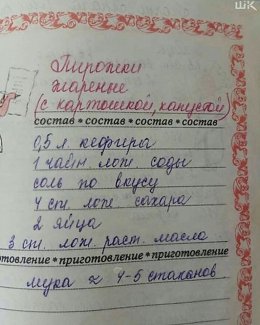 ШК
Пирожки
жареные
(с картошкой, капустой)
состав * состав * состав * состав
0,5 л. кефира
1 чайн. лож. соды
соль по вкусу
4 ст. лож. сахара
2 яйца
3 ст. лож. раст. масла
отовление * приготовление * приготовление
мука ≈ 4-5 стаканов